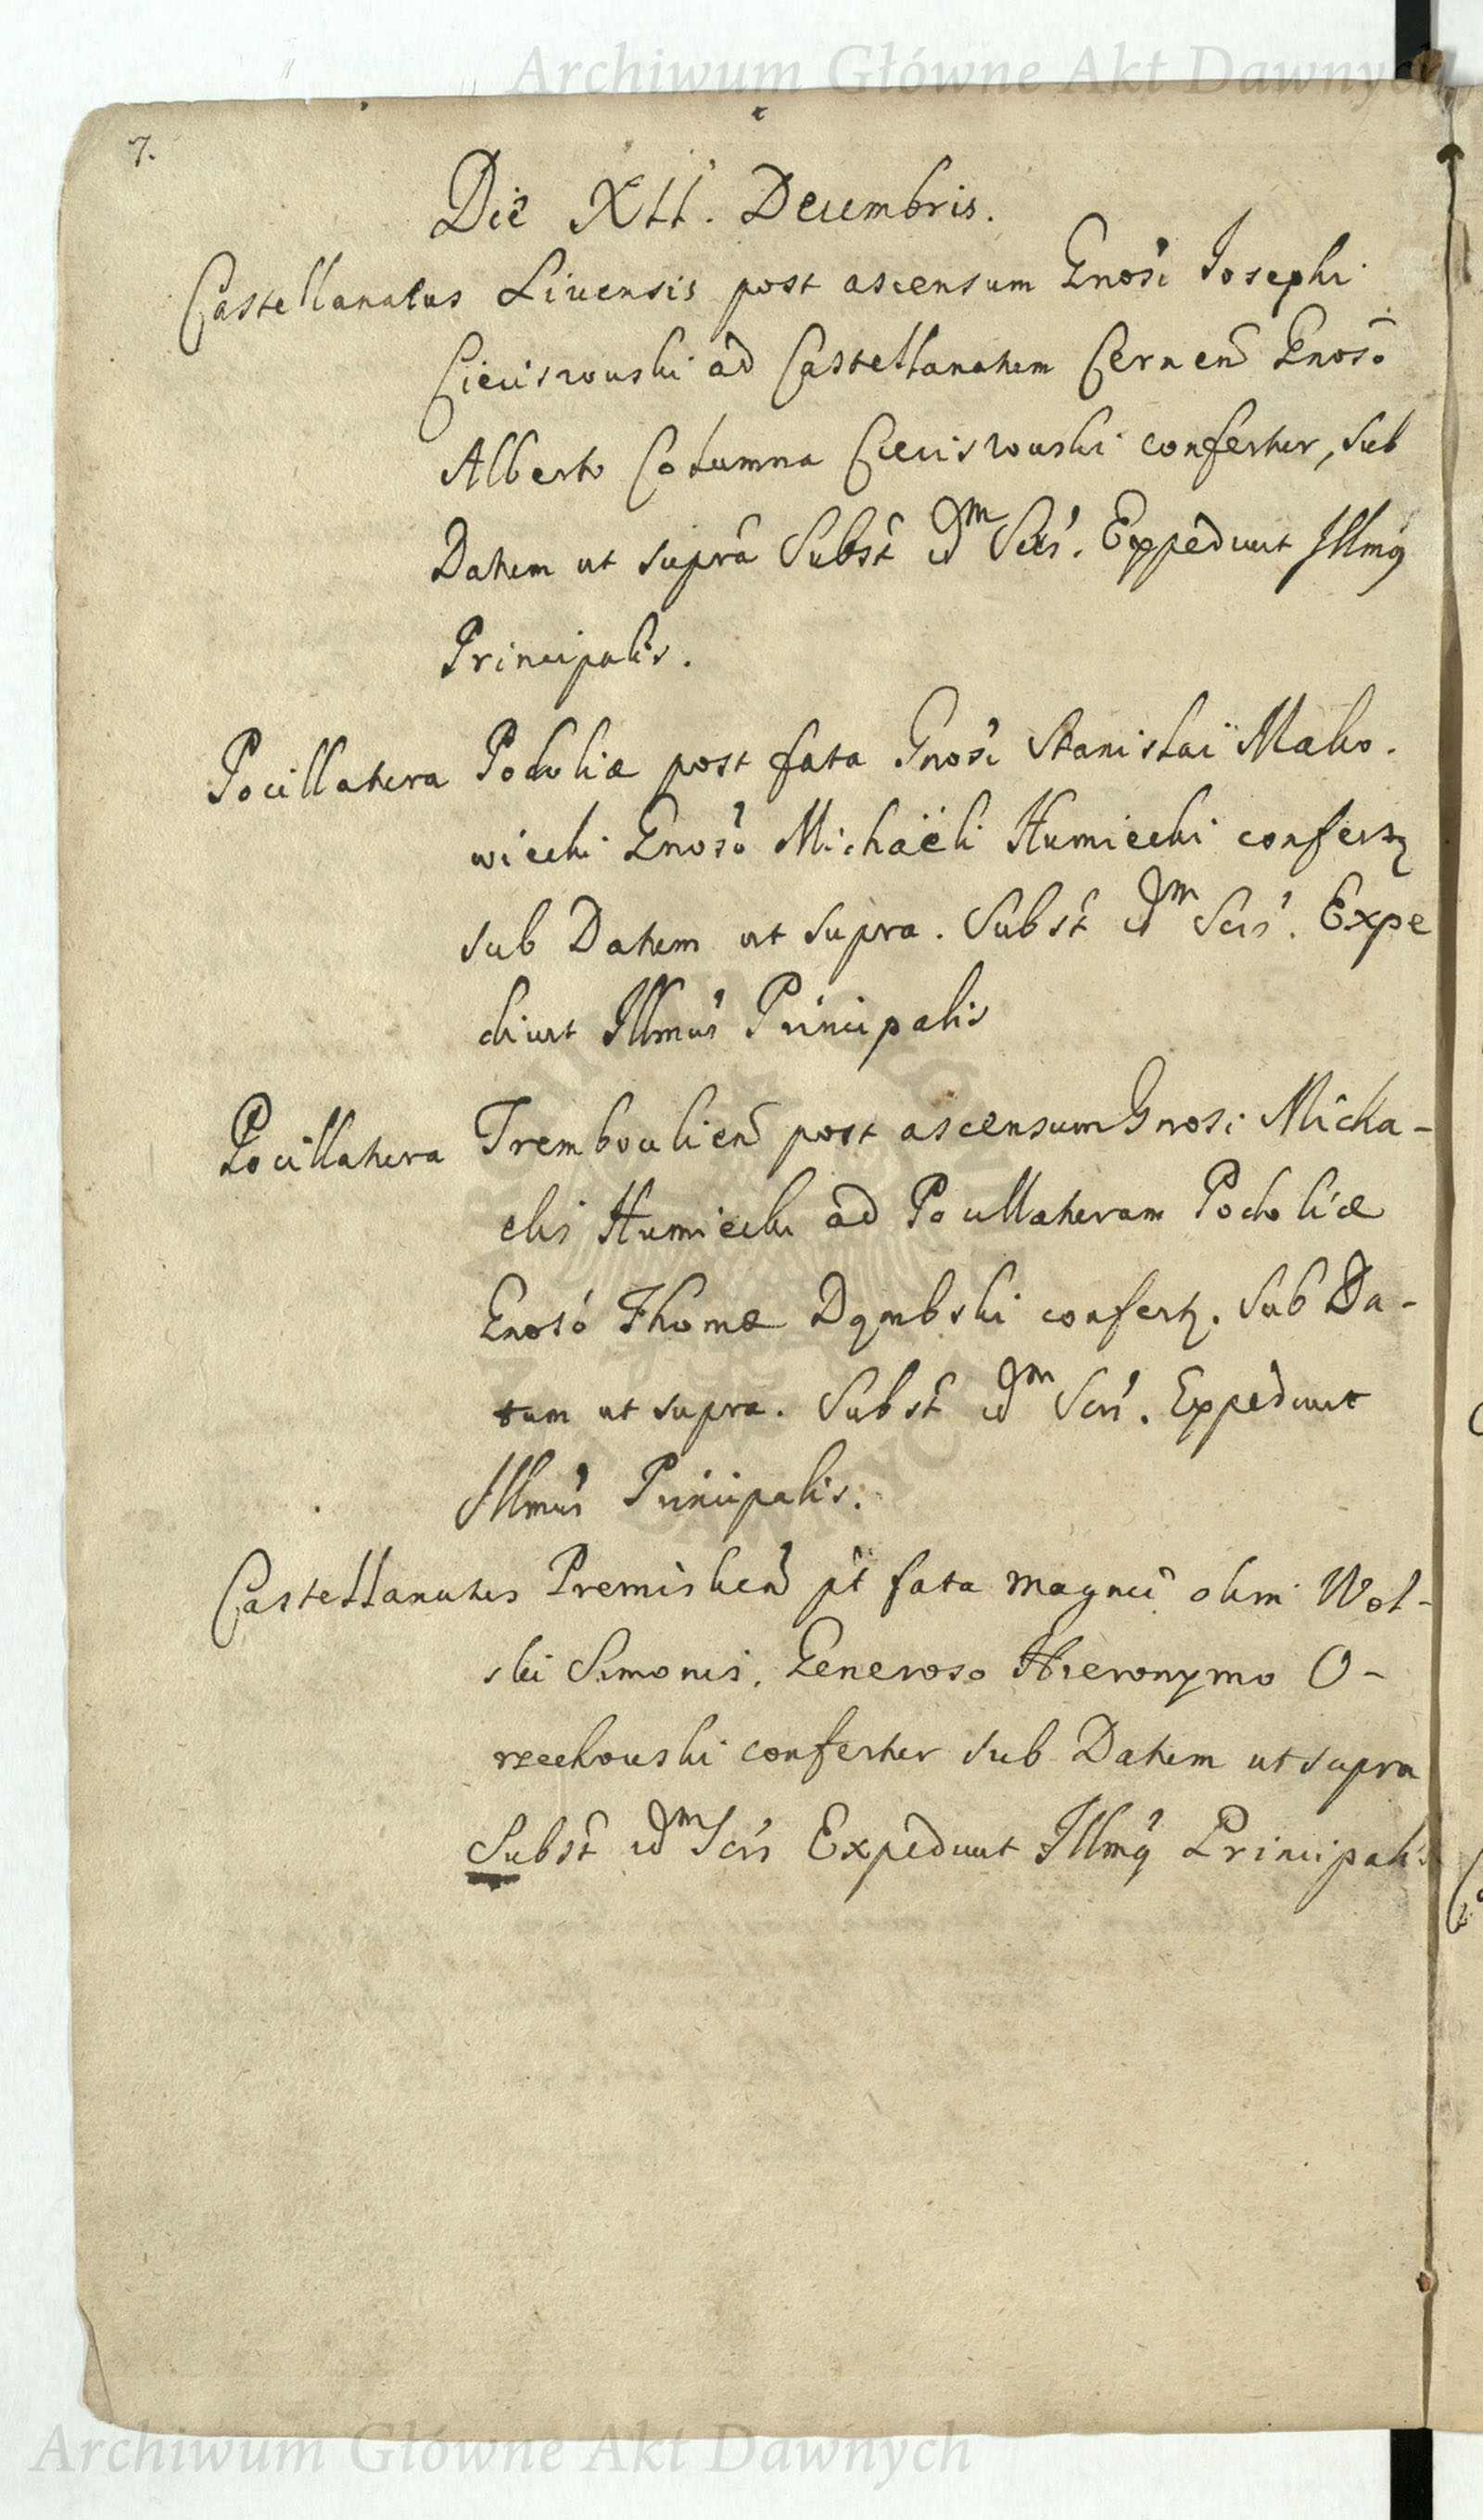 Archiwum Główne Akt Dawnych
7.
Die XII. Decembris.
Castellanatus Livensis post ascensum Gnosi Iosephi
Cieciszowski ad Castellanatum Cernen Gnoso
Alberto Columna Cieciszowski confertur, sub
Datum ut supra Subst id m Scis. Expediunt Illmq
Principalis.
Pocillatura Podoliæ post fata Gnosi Stanislai Mako.
wiecki Gnoso Michaëli Humiecki confertz
sub Datum ut supra. Subst id m Scis. Expe
diunt Illmus Principalis
Pocillatura Tremboulien post ascensum Gnosi Micha-
elis Humiecki ad Pocillaturam Podoliæ
Gnoso Thomæ Dąmbski confertz. Sub Da-
tum ut supra. Subst id m Scis. Expediunt
Illmus Principalis.
Castellanatus Premislien pt fata magnci olim Wol-
ski Simonis, Generoso Hieronymo O-
rzechowski confertur sub Datum ut supra
Subst id m Scis Expediunt Illmq Principalis
Archiwum Główne Akt Dawnych